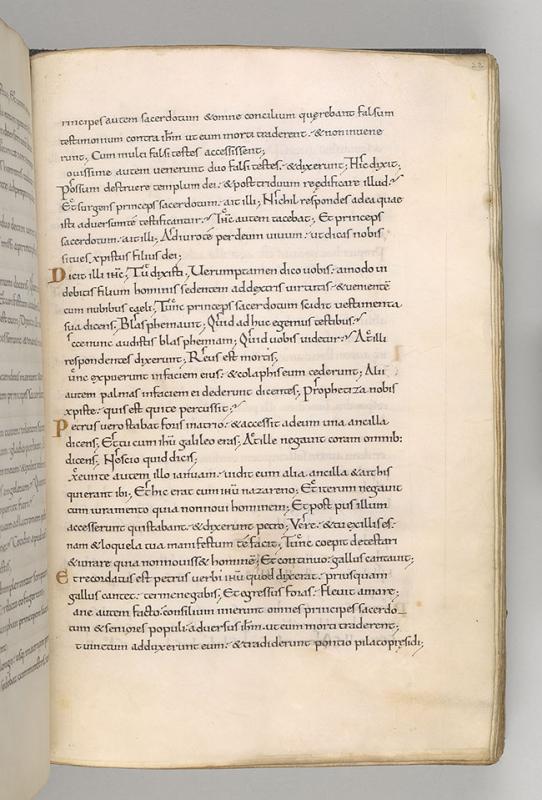 22
rincipes autem sacerdotum &omne concilium querebant falsum
testimonium contra ihm ut eum morti traderent. &noninvene
runt; Cum multi falsi testes accessissent;
ouissime autem venerunt duo falsi testes. &dixerunt; Hic dixit;
Possum destruere templum dei. &post triduum reedificare illud;
Et surgens princeps sacerdotum. ait illi; Nichil respondes ad ea quae
isti adversum te testificantur; Ihc autem tacebat; Et princeps
sacerdotum. ait illi; Adiuro te per deum vivum. ut dicas nobis
si tu es xpistus filius dei;
Dicit illi ihc; Tu dixisti; Verumptamen dico vobis. amodo vi
debitis filium hominis sedentem addextris virtutis &venientē
cum nubibus caeli; Tunc princeps sacerdotum scidit vestimenta
sua dicens; Blasphemavit; Quid adhuc egemus testibus;
cce nunc audistis blasphemiam; Quid vobis videtur; At illi
respondentes dixerunt; Reus est mortis;
unc expuerunt infaciem eius. &colaphis eum cederunt; Alii
autem palmas infaciem ei dederunt dicentes; Prophetiza nobis
xpiste. quis est qui te percussit;
Petrus vero stabat foris inatrio. &accessit ad eum una ancilla
dicens; Et tu cum ihu galileo eras; At ille negavit coram omnib:
dicens; Nescio quid dicis;
xeunte autem illo ianuam. vidit eum alia ancilla &ait his
qui erant ibi; Et hic erat cum ihu nazareno; Et iterum negavit
cum iuramento quia non novi hominem; Et post pusillum
accesserunt qui stabant. &dixerunt petro; Vere &tu ex illis es.
nam &loquela tua manifestum te facit; Tunc coepit detestari
&iurare quia non novisse hominē; Et continuo. gallus cantavit;
Et recordatus est petrus verbi ihu quod dixerat. priusquam
gallus cantet. ter me negabis; Et egressus foras. flevit amare;
ane autem facto. consilium inierunt omnes principes sacerdo
tum &seniores populi. adversus ihm. ut eum morti traderent;
t vinctum adduxerunt eum. &tradiderunt pontio pilato presidi;